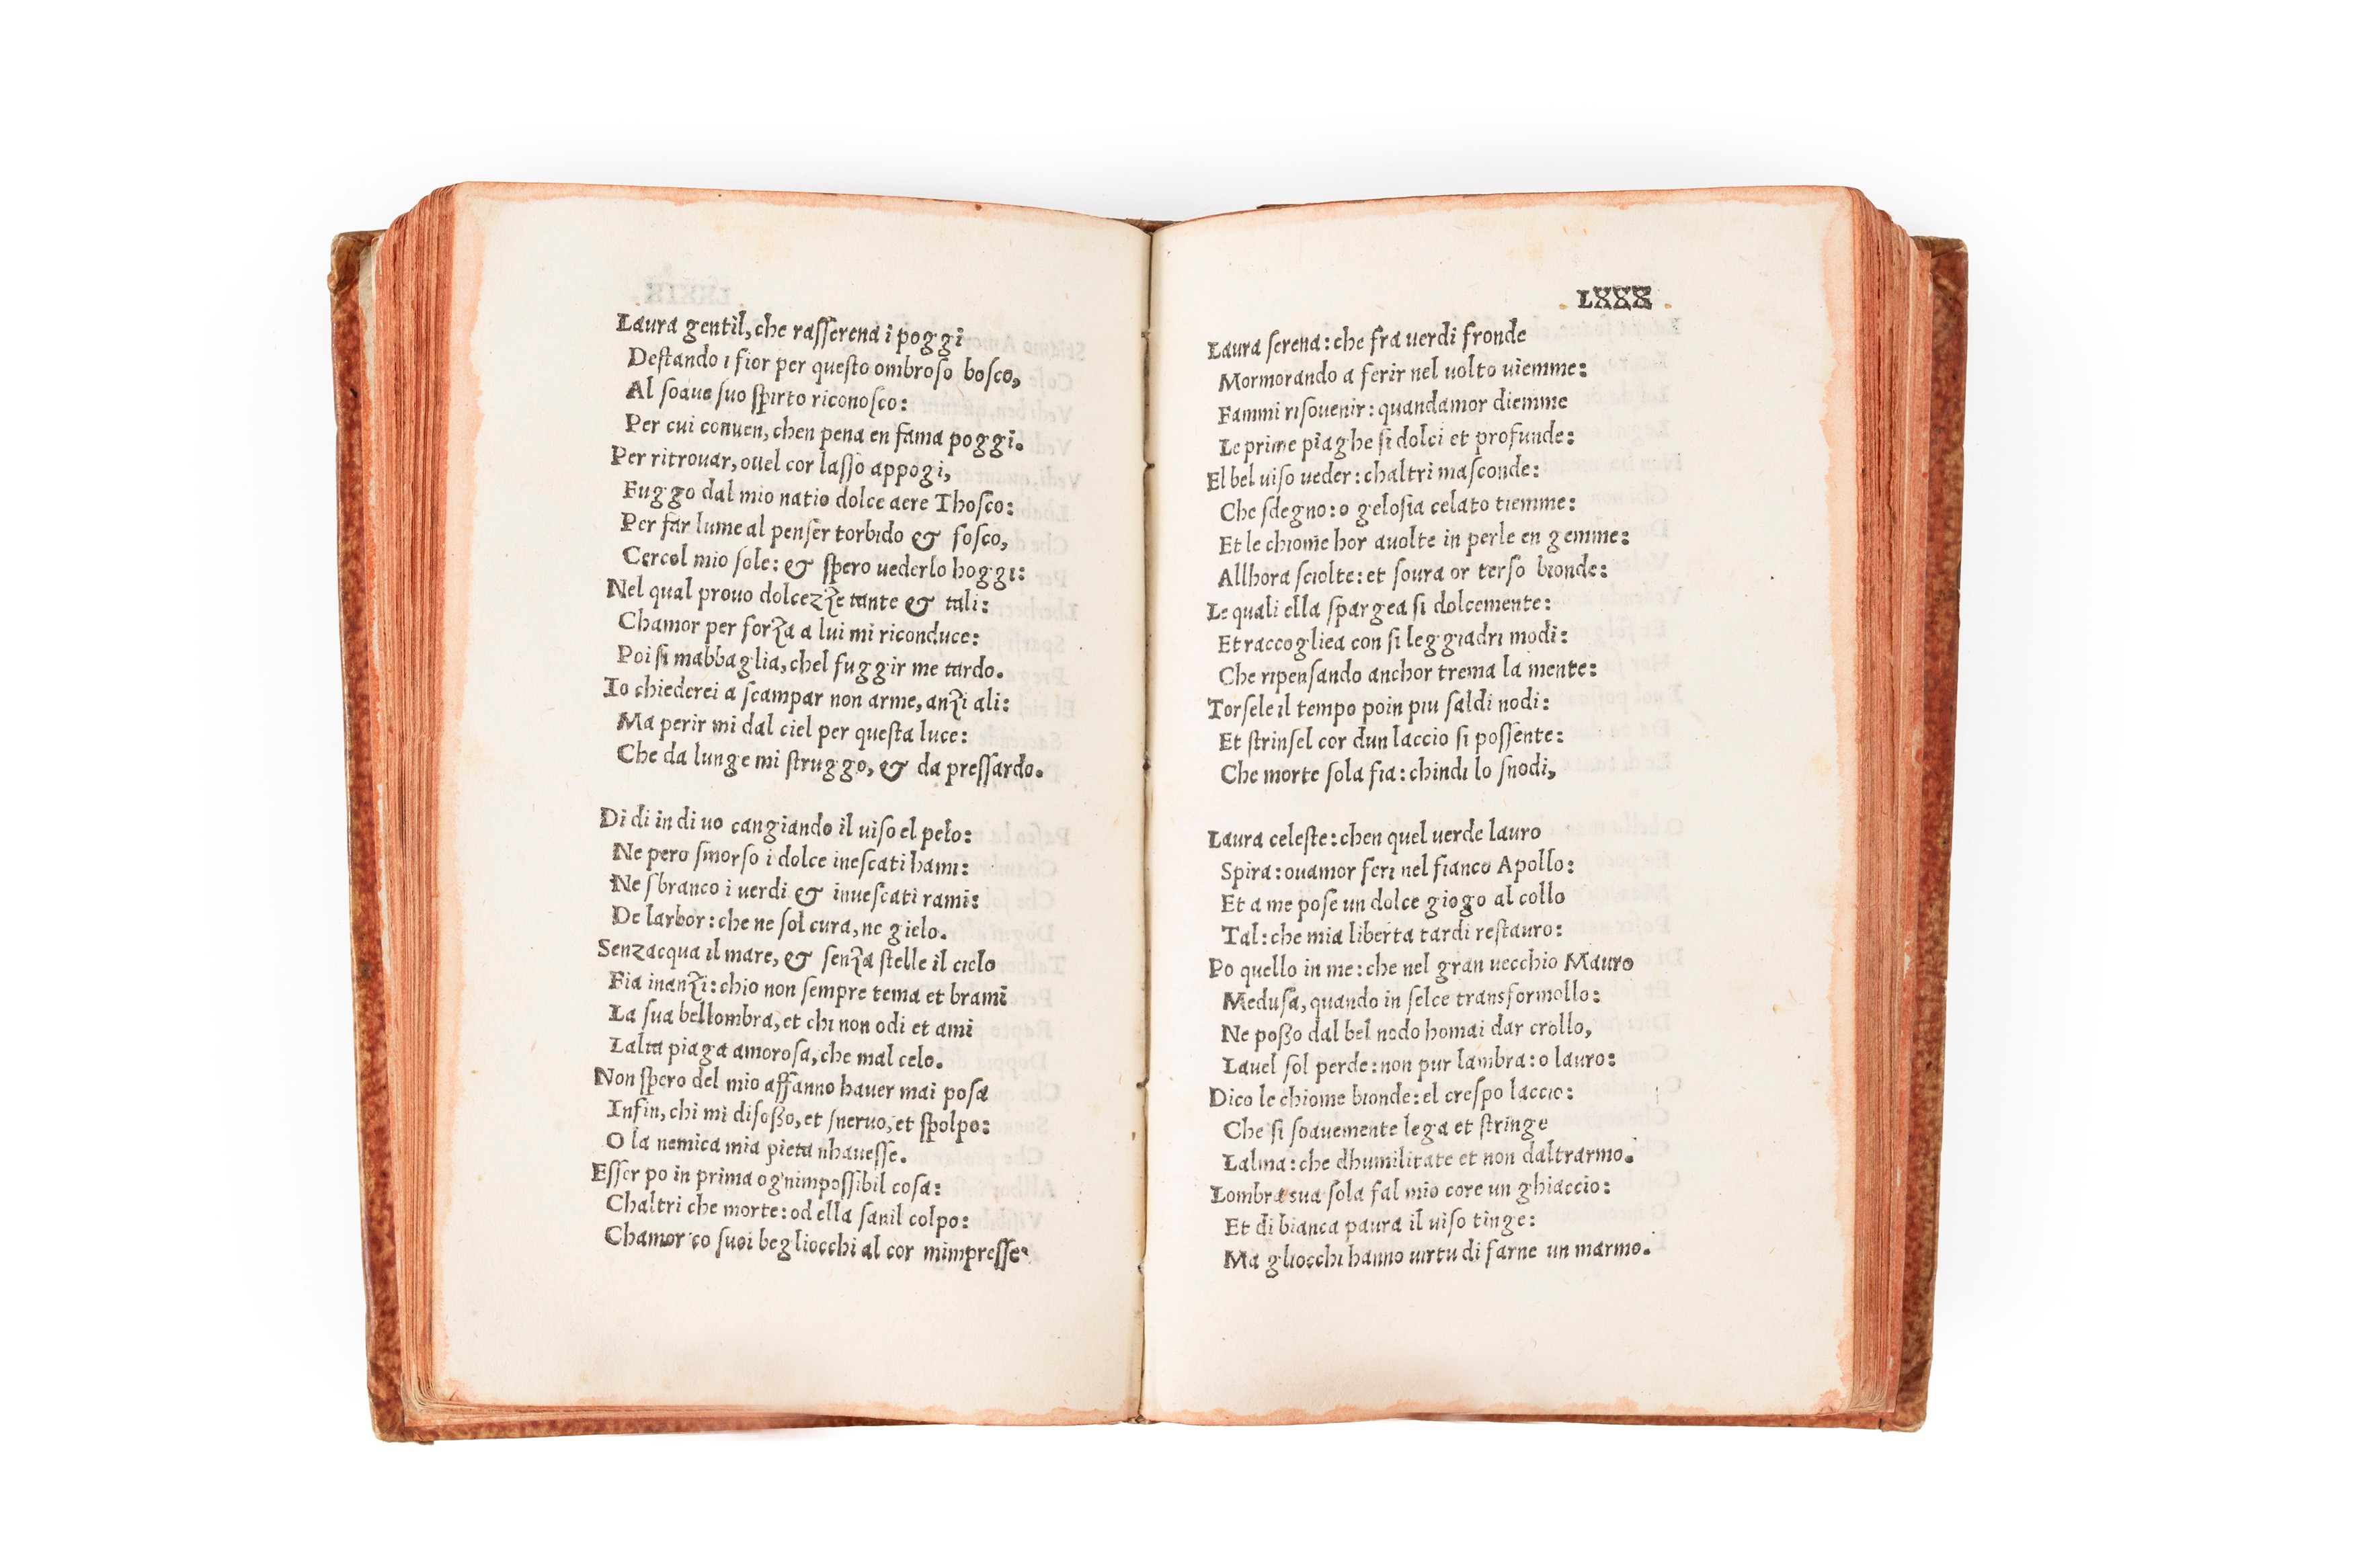 Laura gentil, che raſſerena i poggi
Deſtando i fior per queſto ombroſo boſco,
Al ſoaue ſuo ſpirto riconoſco:
Per cui conuen, chen pena en fama poggi.
Per ritrouar, ouel cor laſſo appogi,
Fuggo dal mio natio dolce aere Thoſco:
Per far lume al penſer torbido & foſco,
Cercol mio ſole: & ſpero uederlo hoggi:
Nel qual prouo dolcezze tante & tali:
Chamor per forza a lui mi riconduce:
Poi ſi mabbaglia, chel fuggir me tardo.
Io chiederei a ſcampar non arme, anzi ali:
Ma perir mi dal ciel per queſta luce:
Che da lunge mi ſtruggo, & da preſſardo.
Di di in di uo cangiando il uiſo el pelo:
Ne pero ſmorſo i dolce ineſcati hami:
Ne ſbranco i uerdi & inueſcati rami:
De larbor: che ne ſol cura, ne gielo.
Senzacqua il mare, & ſenza ſtelle il cielo
Fia inanzi: chio non ſempre tema et brami
La ſua bellombra, et chi non odi et ami
Lalta piaga amoroſa, che mal celo.
Non ſpero del mio affanno hauer mai poſa
Infin, chi mi diſoßo, et ſneruo, et ſpolpo:
O la nemica mia pieta nhaueſſe.
Eſſer po in prima ognimpoſſibil coſa:
Chaltri che morte: od ella ſanil colpo:
Chamor co ſuoi begliocchi al cor mimpreſſe.
LXXX
Laura ſerena: che fra uerdi fronde
Mormorando a ferir nel uolto uiemme:
Fammi riſouenir: quandamor diemme
Le prime piaghe ſi dolci et profunde:
El bel uiſo ueder: chaltri maſconde:
Che ſdegno: o geloſia celato tiemme:
Et le chiome hor auolte in perle en gemme:
Allhora ſciolte: et ſoura or terſo bionde:
Le quali ella ſpargea ſi dolcemente:
Et raccogliea con ſi leggiadri modi:
Che ripenſando anchor trema la mente:
Torſele il tempo poin piu ſaldi nodi:
Et ſtrinſel cor dun laccio ſi poſſente:
Che morte ſola fia: chindi lo ſnodi,
Laura celeſte: chen quel uerde lauro
Spira: ouamor feri nel fianco Apollo:
Et a me poſe un dolce giogo al collo
Tal: che mia liberta tardi reſtauro:
Po quello in me: che nel gran uecchio Mauro
Meduſa, quando in ſelce transformollo:
Ne poßo dal bel nodo homai dar crollo,
Lauel ſol perde: non pur lambra: o lauro:
Dico le chiome bionde: el creſpo laccio:
Che ſi ſoauemente lega et ſtringe
Lalma: che dhumilitate et non daltrarmo.
Lombra sua ſola fal mio core un ghiaccio:
Et di bianca paura il uiſo tinge:
Ma gliocchi hanno uirtu di farne un marmo.